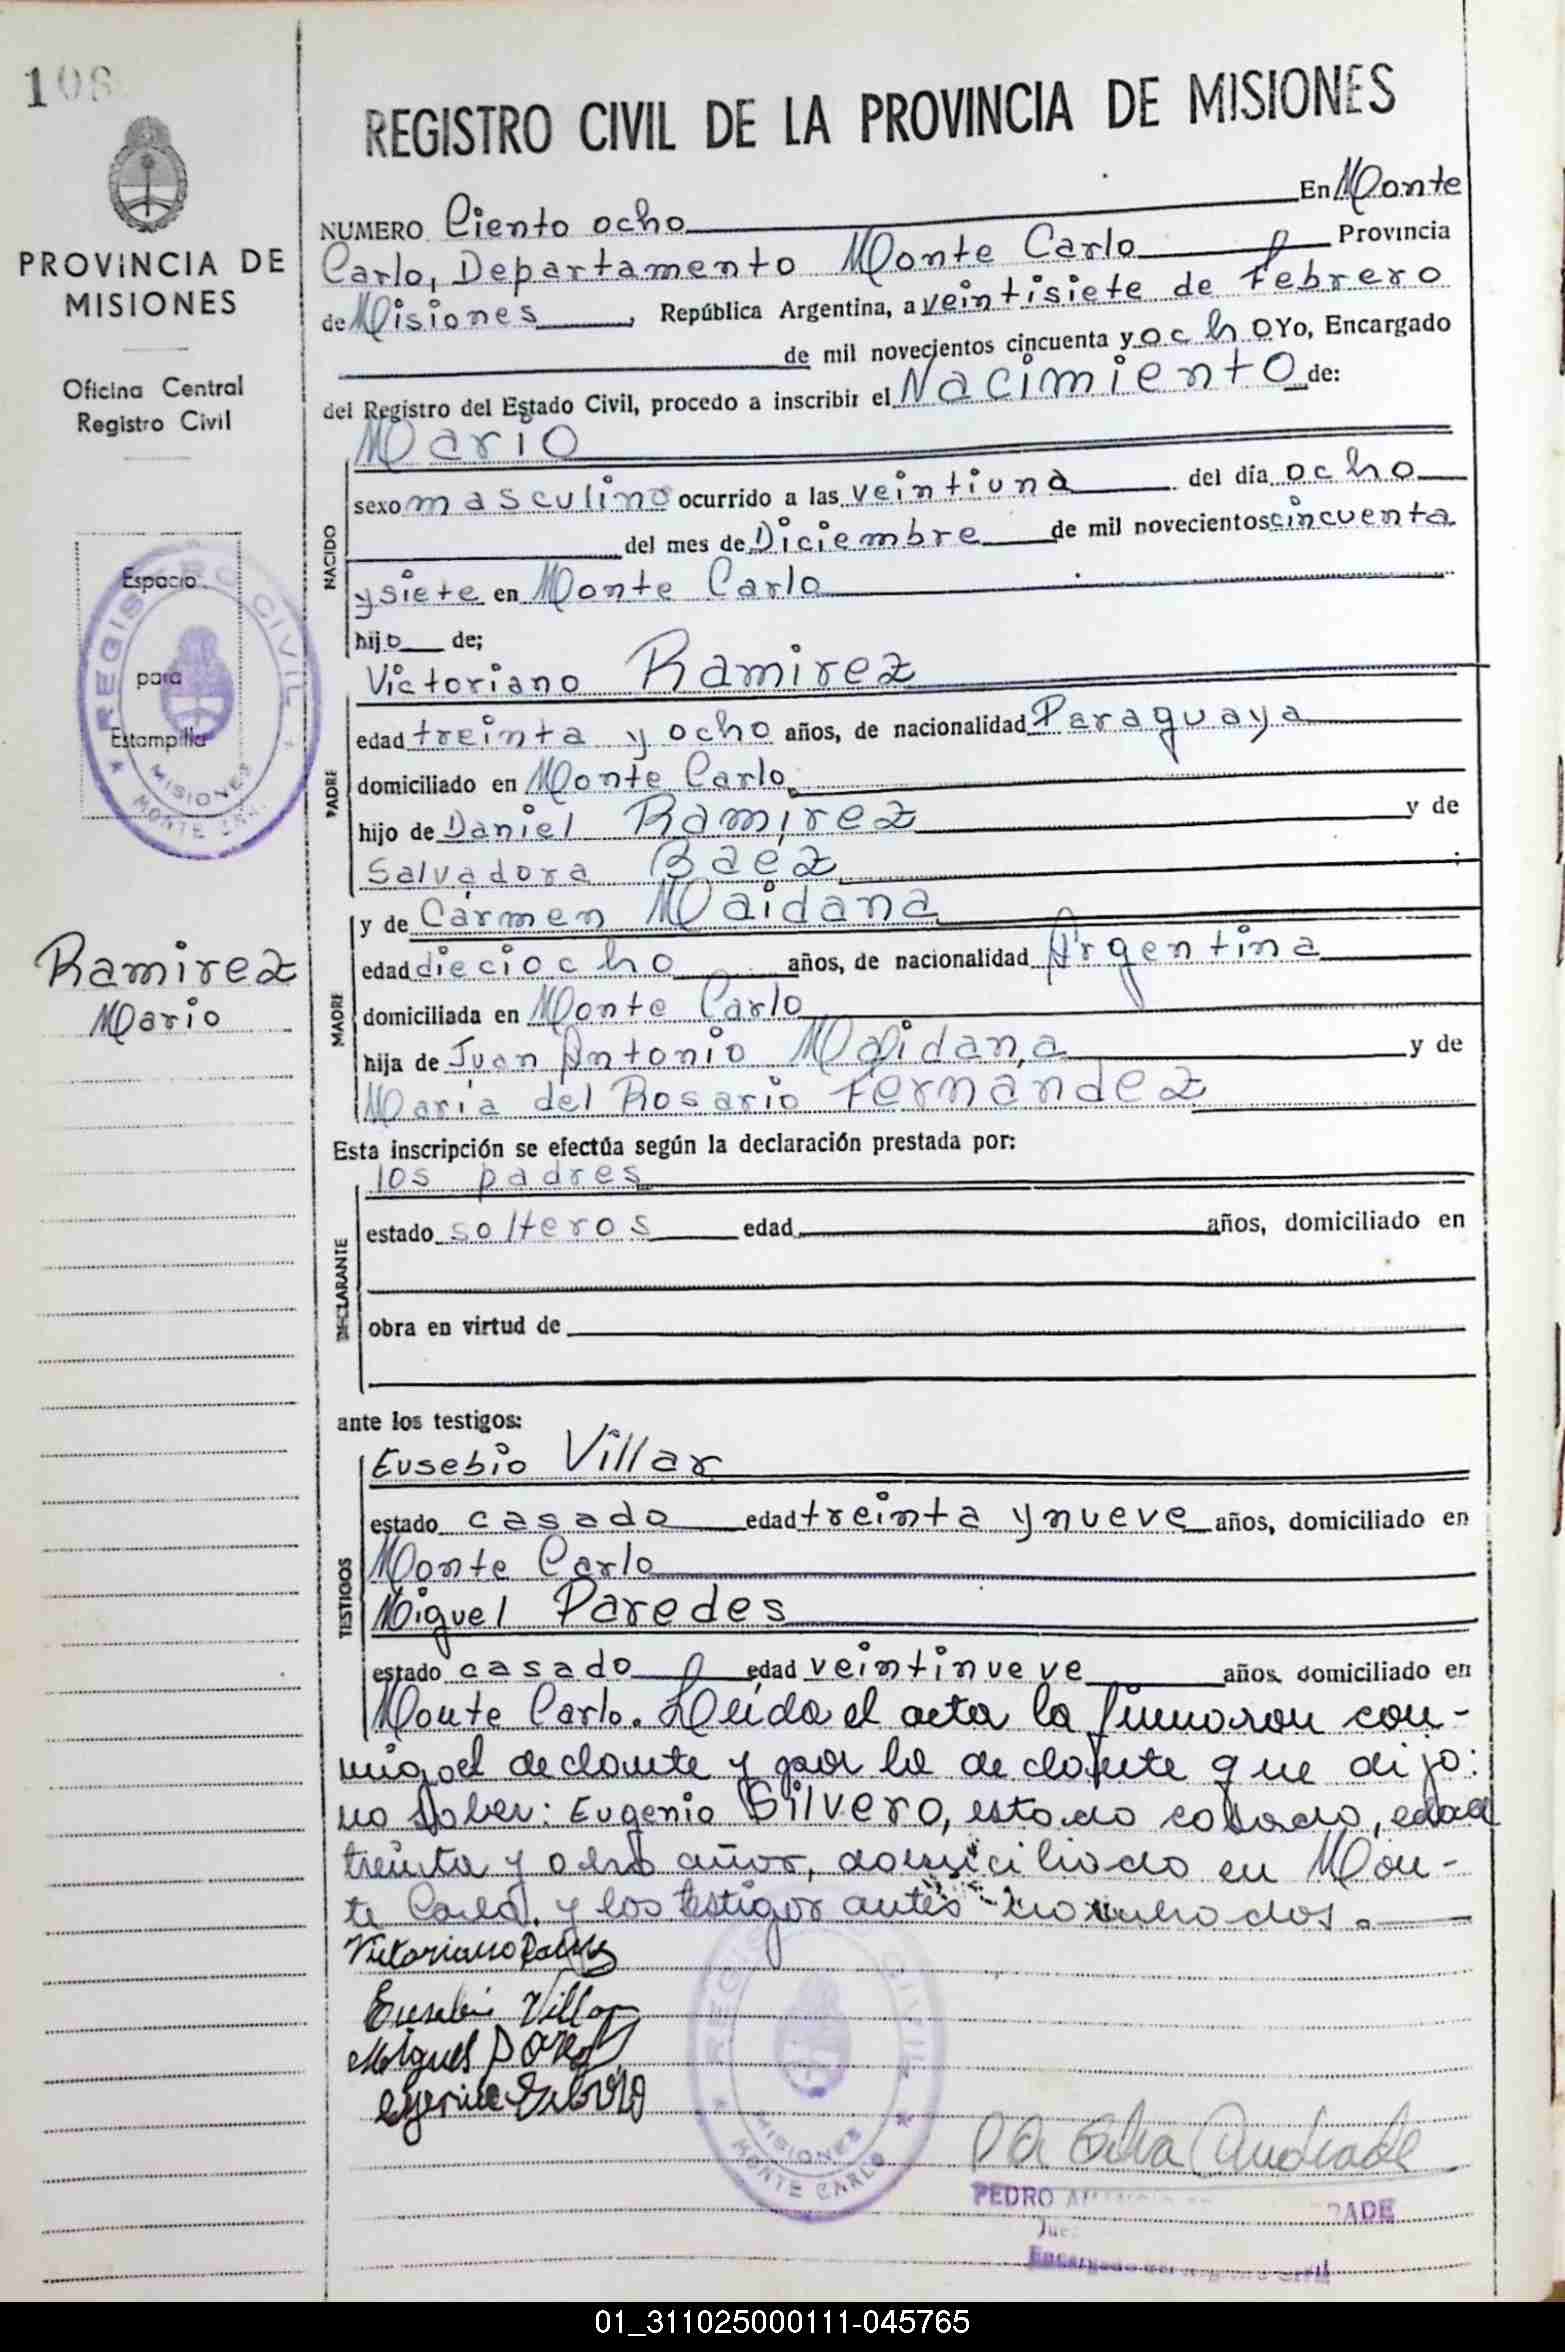 108
PROVINCIA DE
MISIONES
Oficina Central
Registro Civil
Espacio
para
Estampilla
REGISTRO CIVIL
MISIONES
MONTE
Ramirez
Mario
REGISTRO CIVIL DE LA PROVINCIA DE MISIONES
NUMERO Ciento ocho En Monte
Carlo, Departamento Monte Carlo Provincia
de Misiones, República Argentina, a veintisiete de Febrero
de mil novecientos cincuenta y ocho Yo, Encargado
del Registro del Estado Civil, procedo a inscribir el Nacimiento de:
NACIDO
Mario
sexo masculino ocurrido a las veintiuna del día ocho
del mes de Diciembre de mil novecientos cincuenta
y siete en Monte Carlo
hijo de;
PADRE
Victoriano Ramirez
edad treinta y ocho años, de nacionalidad Paraguaya
domiciliado en Monte Carlo
hijo de Daniel Ramirez y de
Salvadora Baez
MADRE
y de Carmen Maidana
edad dieciocho años, de nacionalidad Argentina
domiciliada en Monte Carlo
hija de Juan Antonio Maidana y de
Maria del Rosario Fernandez
Esta inscripción se efectúa según la declaración prestada por:
DECLARANTE
los padres
estado solteros edad años, domiciliado en
obra en virtud de
ante los testigos:
TESTIGOS
Eusebio Villar
estado casado edad treinta y nueve años, domiciliado en
Monte Carlo
Miguel Paredes
estado casado edad veintinueve años, domiciliado en
Monte Carlo. Leída el acta la firmaron con-
migo el declante y por la declante que dijo:
no saber: Eugenio Silvero, estado casado, edad
treinta y ocho años, domiciliado en Mon-
te Carlo. y los testigos antes nombrados.
Victoriano
Eusebio Villar
Miguel
REGISTRO CIVIL
MISIONES
MONTE CARLO
Da Silva Andrade
PEDRO
Encargado del Registro Civil
01_311025000111-045765